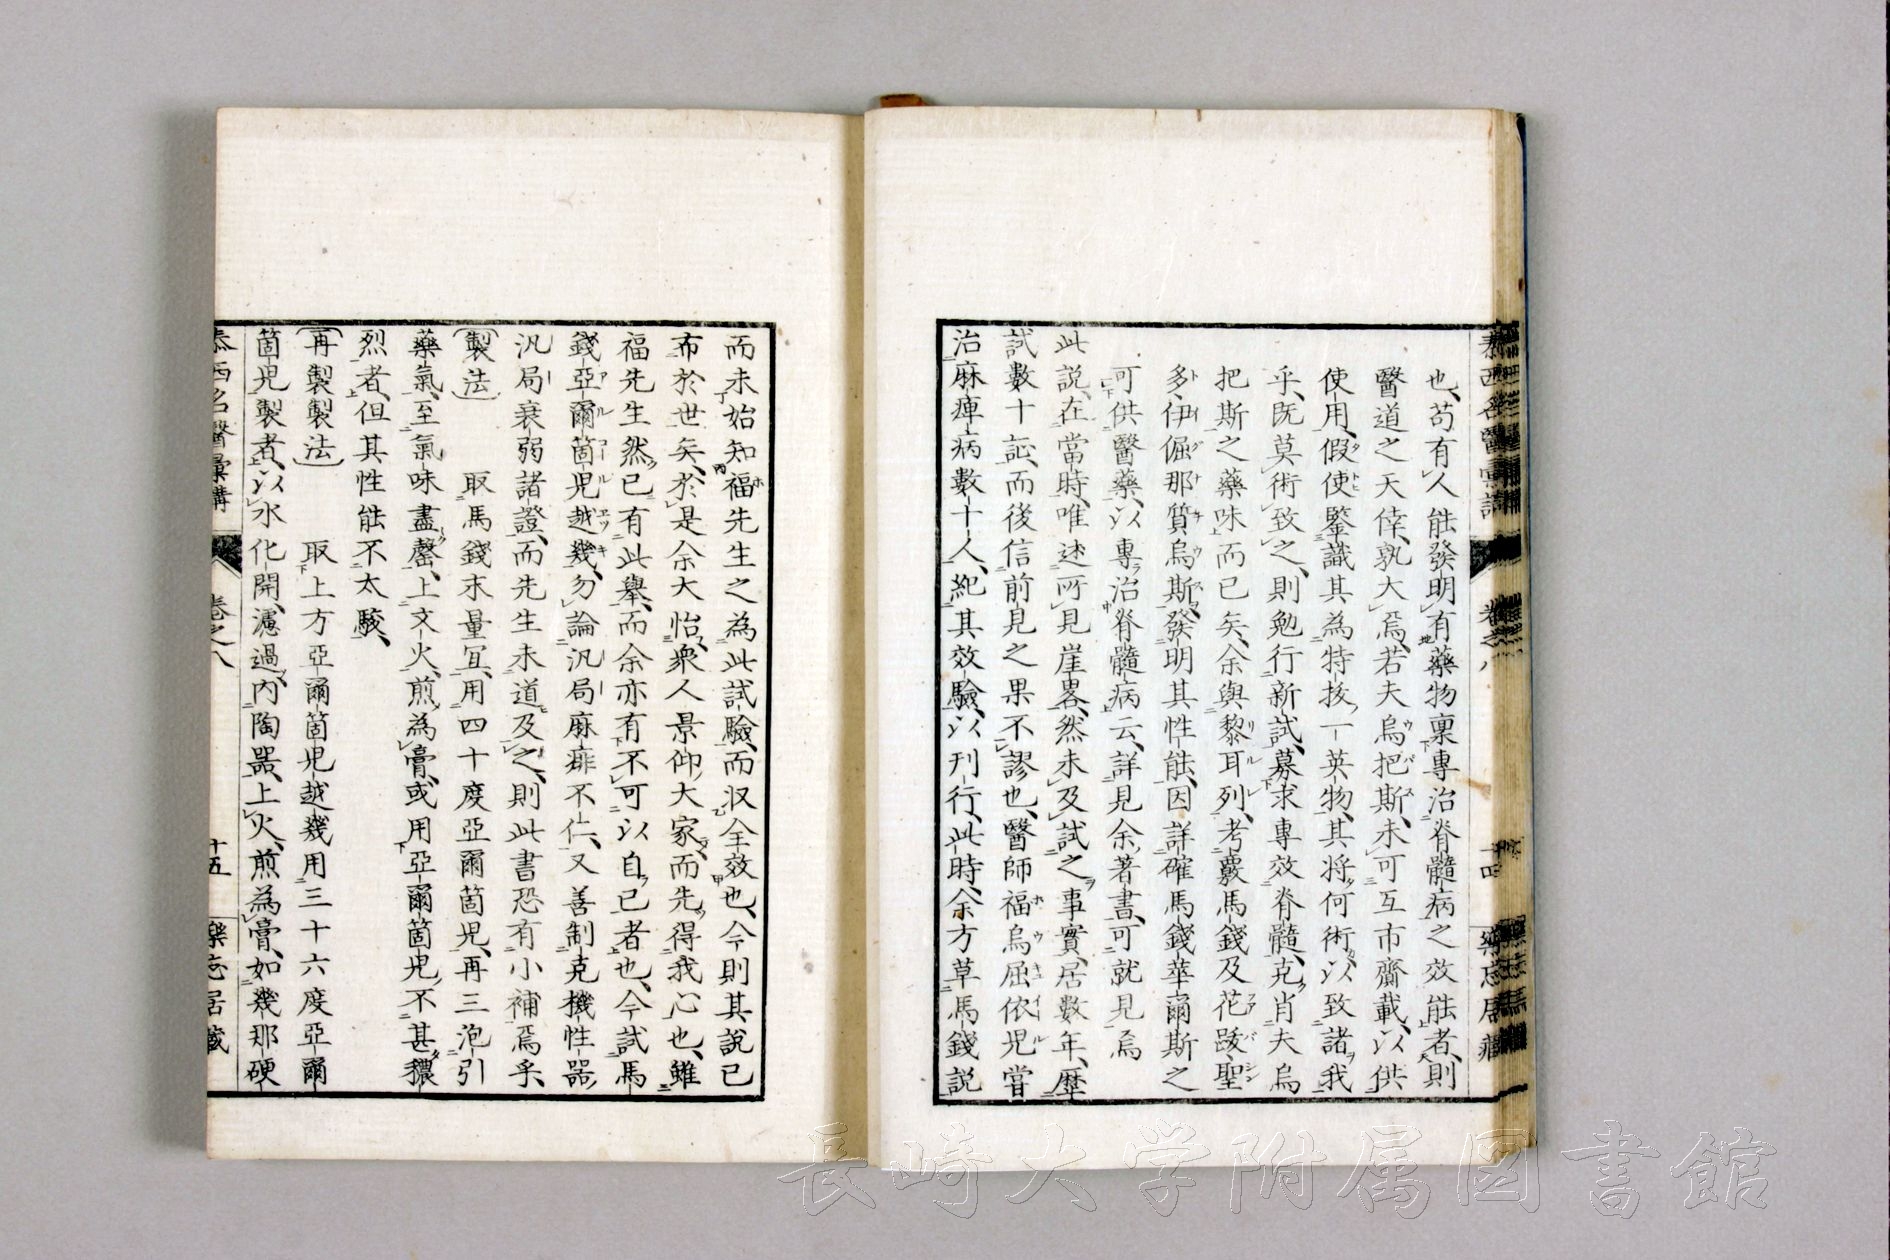 泰西名醫彙講 卷之八 十四 樂忘居藏
也、苟有人能發明有藥物稟專治脊髓病之效能者、則
醫道之天倖、孰大焉、若夫烏把斯、未可互市齎載、以供
使用、假使鑒識其為特拔一英物、其將何術以致諸我
乎、既莫術致之、則勉行新試、募求專效脊髓、克肖夫烏
把斯之藥味而已矣、余與黎耳列、考覈馬錢及花跋聖
多伊倔那質烏斯、發明其性能、因詳確馬錢華爾斯之
可供醫藥、以專治脊髓病云、詳見余著書、可就見焉
此說、在當時、唯述所見崖畧、然未及試之事實、居數年、歷
試數十證、而後信前見之果不謬也、醫師福烏屈依兒嘗
治麻痺病數十人、紀其效驗、以刊行、此時、余方草馬錢說
而未始知福先生之為此試驗、而収全效也、今則其說已
布於世矣、於是余大怡、衆人景仰大家、而先得我心也、雖
福先生然已有此舉、而余亦有不可以自已者也、今試馬
錢亞爾箇兒越幾、勿論汎局麻痺不仁、又善制克機性器、
汎局衰弱諸證、而先生未道及之、則此書恐有小補焉乎、
（製法） 取馬錢末量宜、用四十度亞爾箇兒、再三泡引
藥氣、至氣味盡罄、上文火、煎為膏、或用亞爾箇兒、不甚穠
烈者、但其性能不太駿、
（再製製法） 取上方亞爾箇兒越幾用三十六度亞爾
箇兒製者、以水化開、濾過、內陶器、上火、煎為膏、如幾那硬
泰西名醫彙講 卷之八 十五 樂忘居藏
長崎大学附属図書館